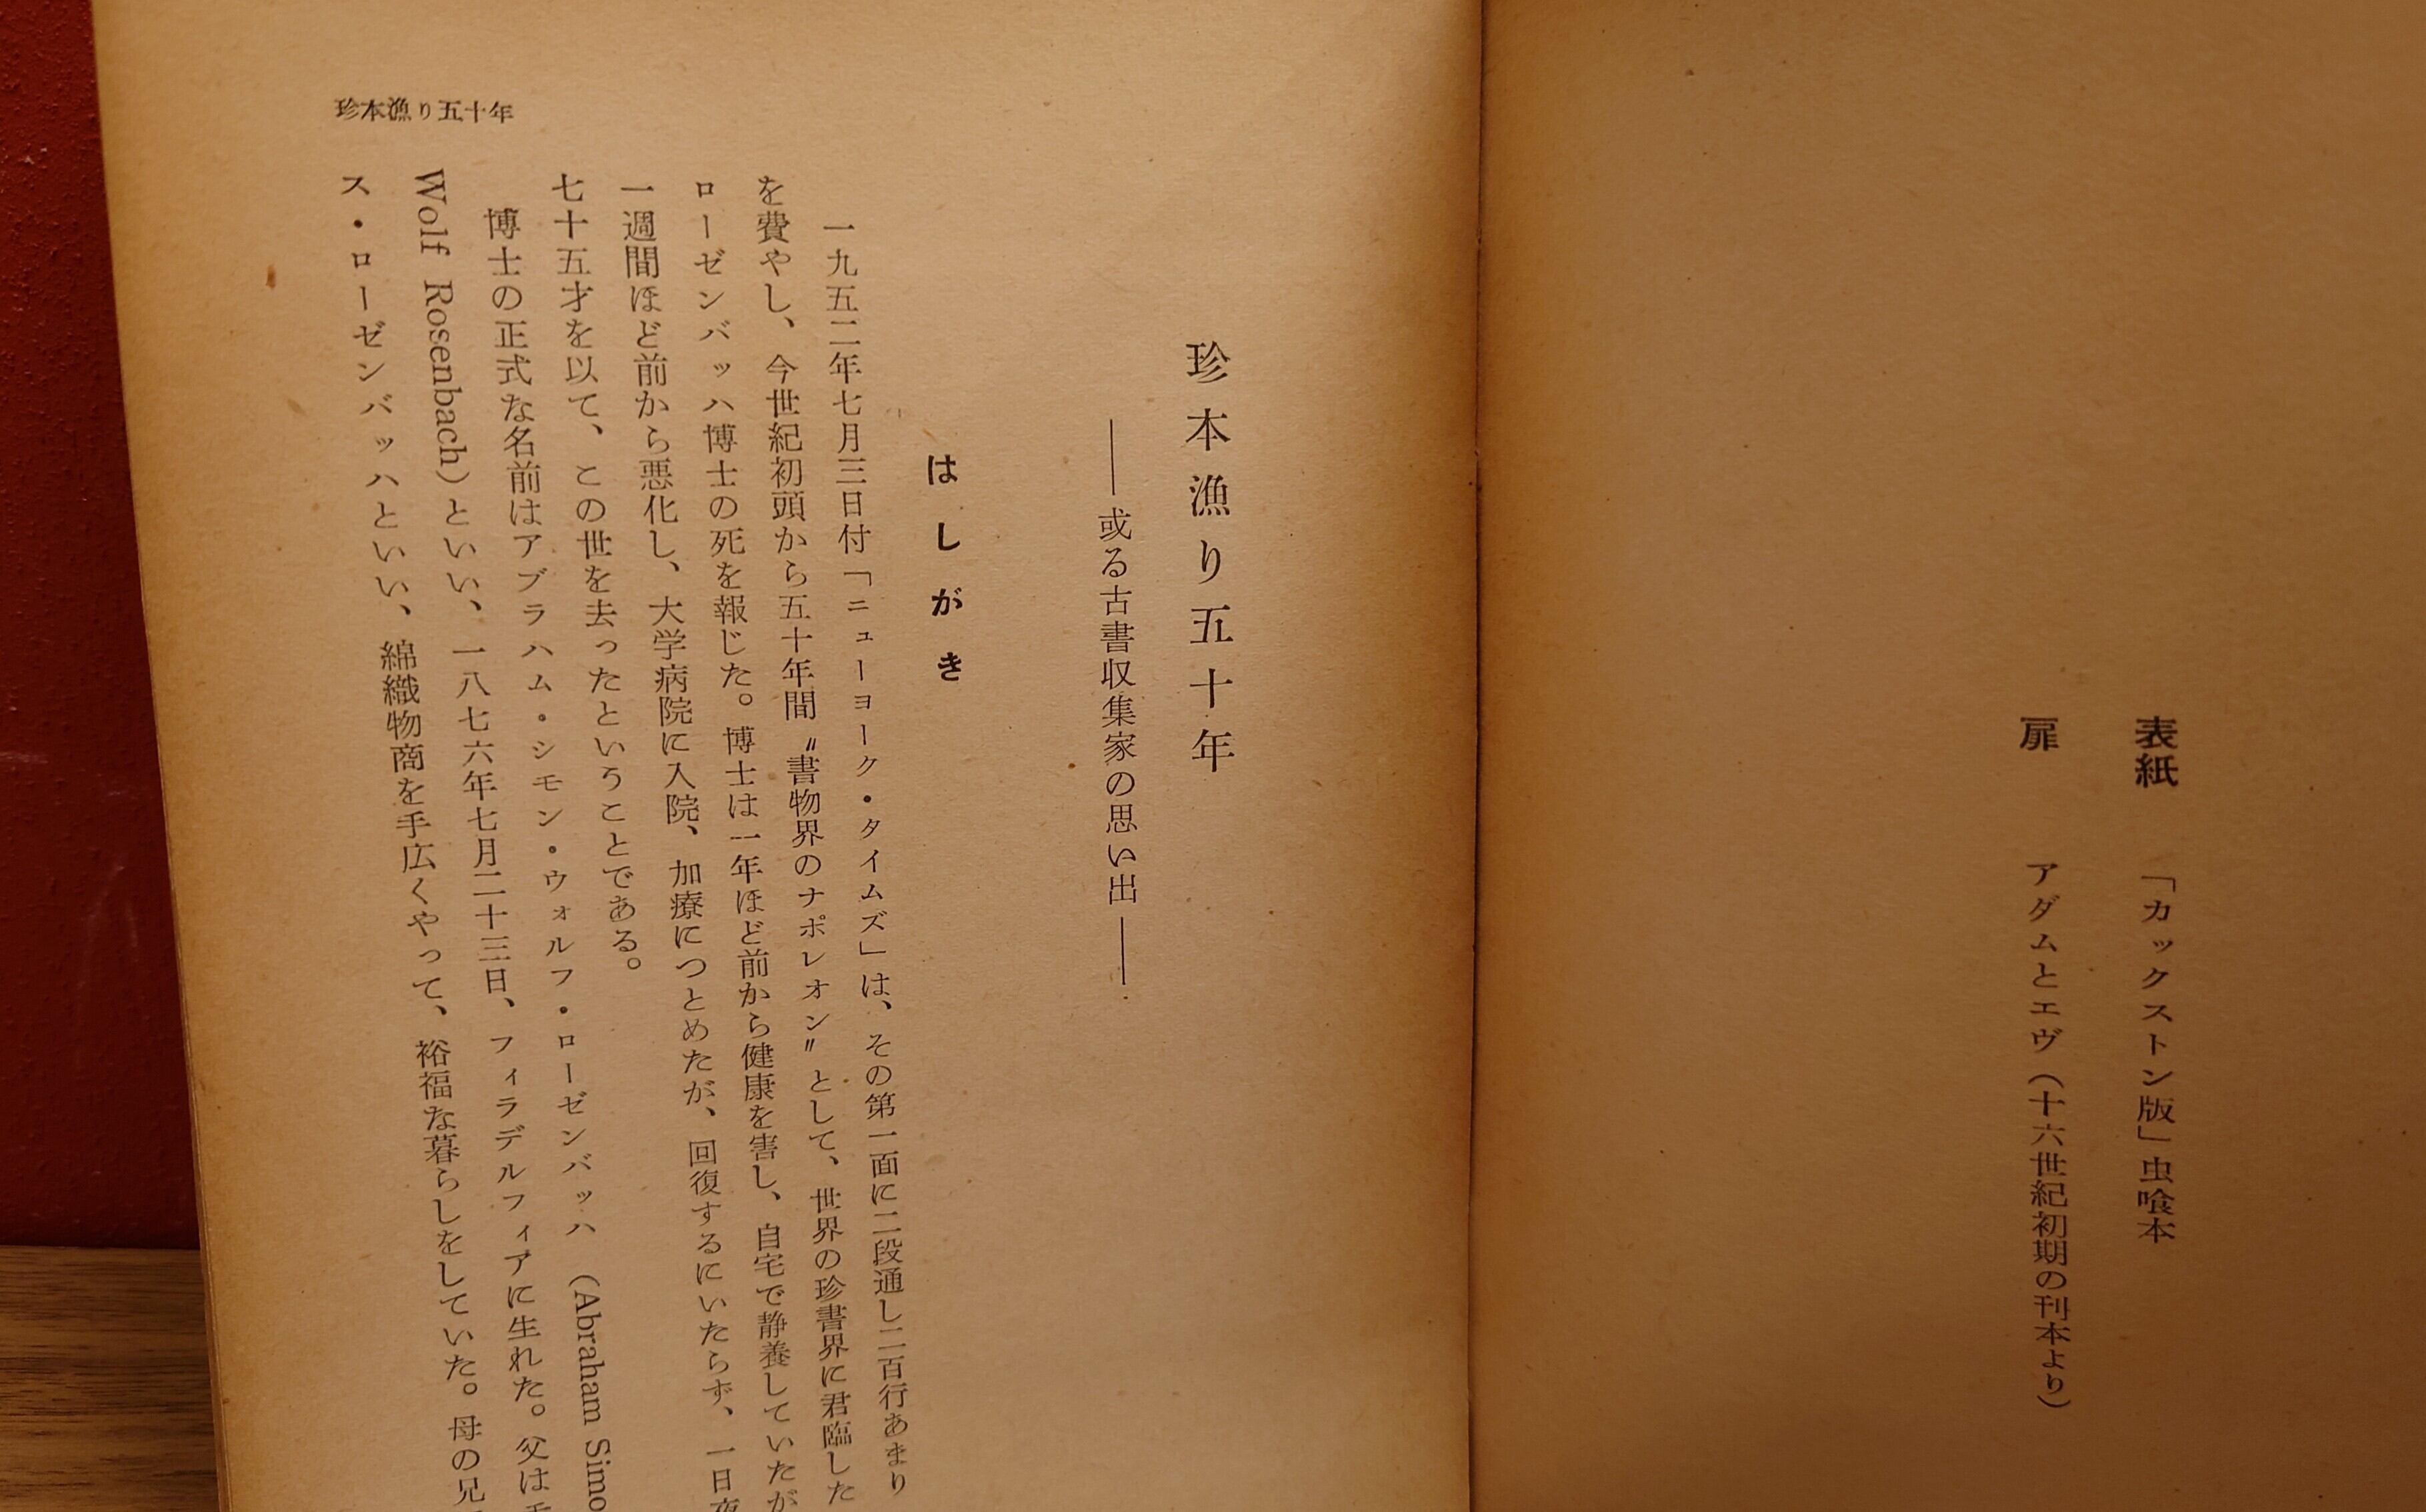 表紙 「カックストン版」虫喰本
扉 アダムとエヴ（十六世紀初期の刊本より）
珍本漁り五十年
――或る古書収集家の思い出――
はしがき
一九五二年七月三日付「ニューヨーク・タイムズ」は、その第一面に二段通し二百行あまり
を費やし、今世紀初頭から五十年間〝書物界のナポレオン〟として、世界の珍書界に君臨した
ローゼンバッハ博士の死を報じた。博士は一年ほど前から健康を害し、自宅で静養していたが
一週間ほど前から悪化し、大学病院に入院、加療につとめたが、回復するにいたらず、一日夜
七十五才を以て、この世を去ったということである。
博士の正式な名前はアブラハム・シモン・ウォルフ・ローゼンバッハ（Abraham Simo
Wolf Rosenbach）といい、一八七六年七月二十三日、フィラデルフィアに生れた。父は
ス・ローゼンバッハといい、綿織物商を手広くやって、裕福な暮らしをしていた。母の兄
珍本漁り五十年